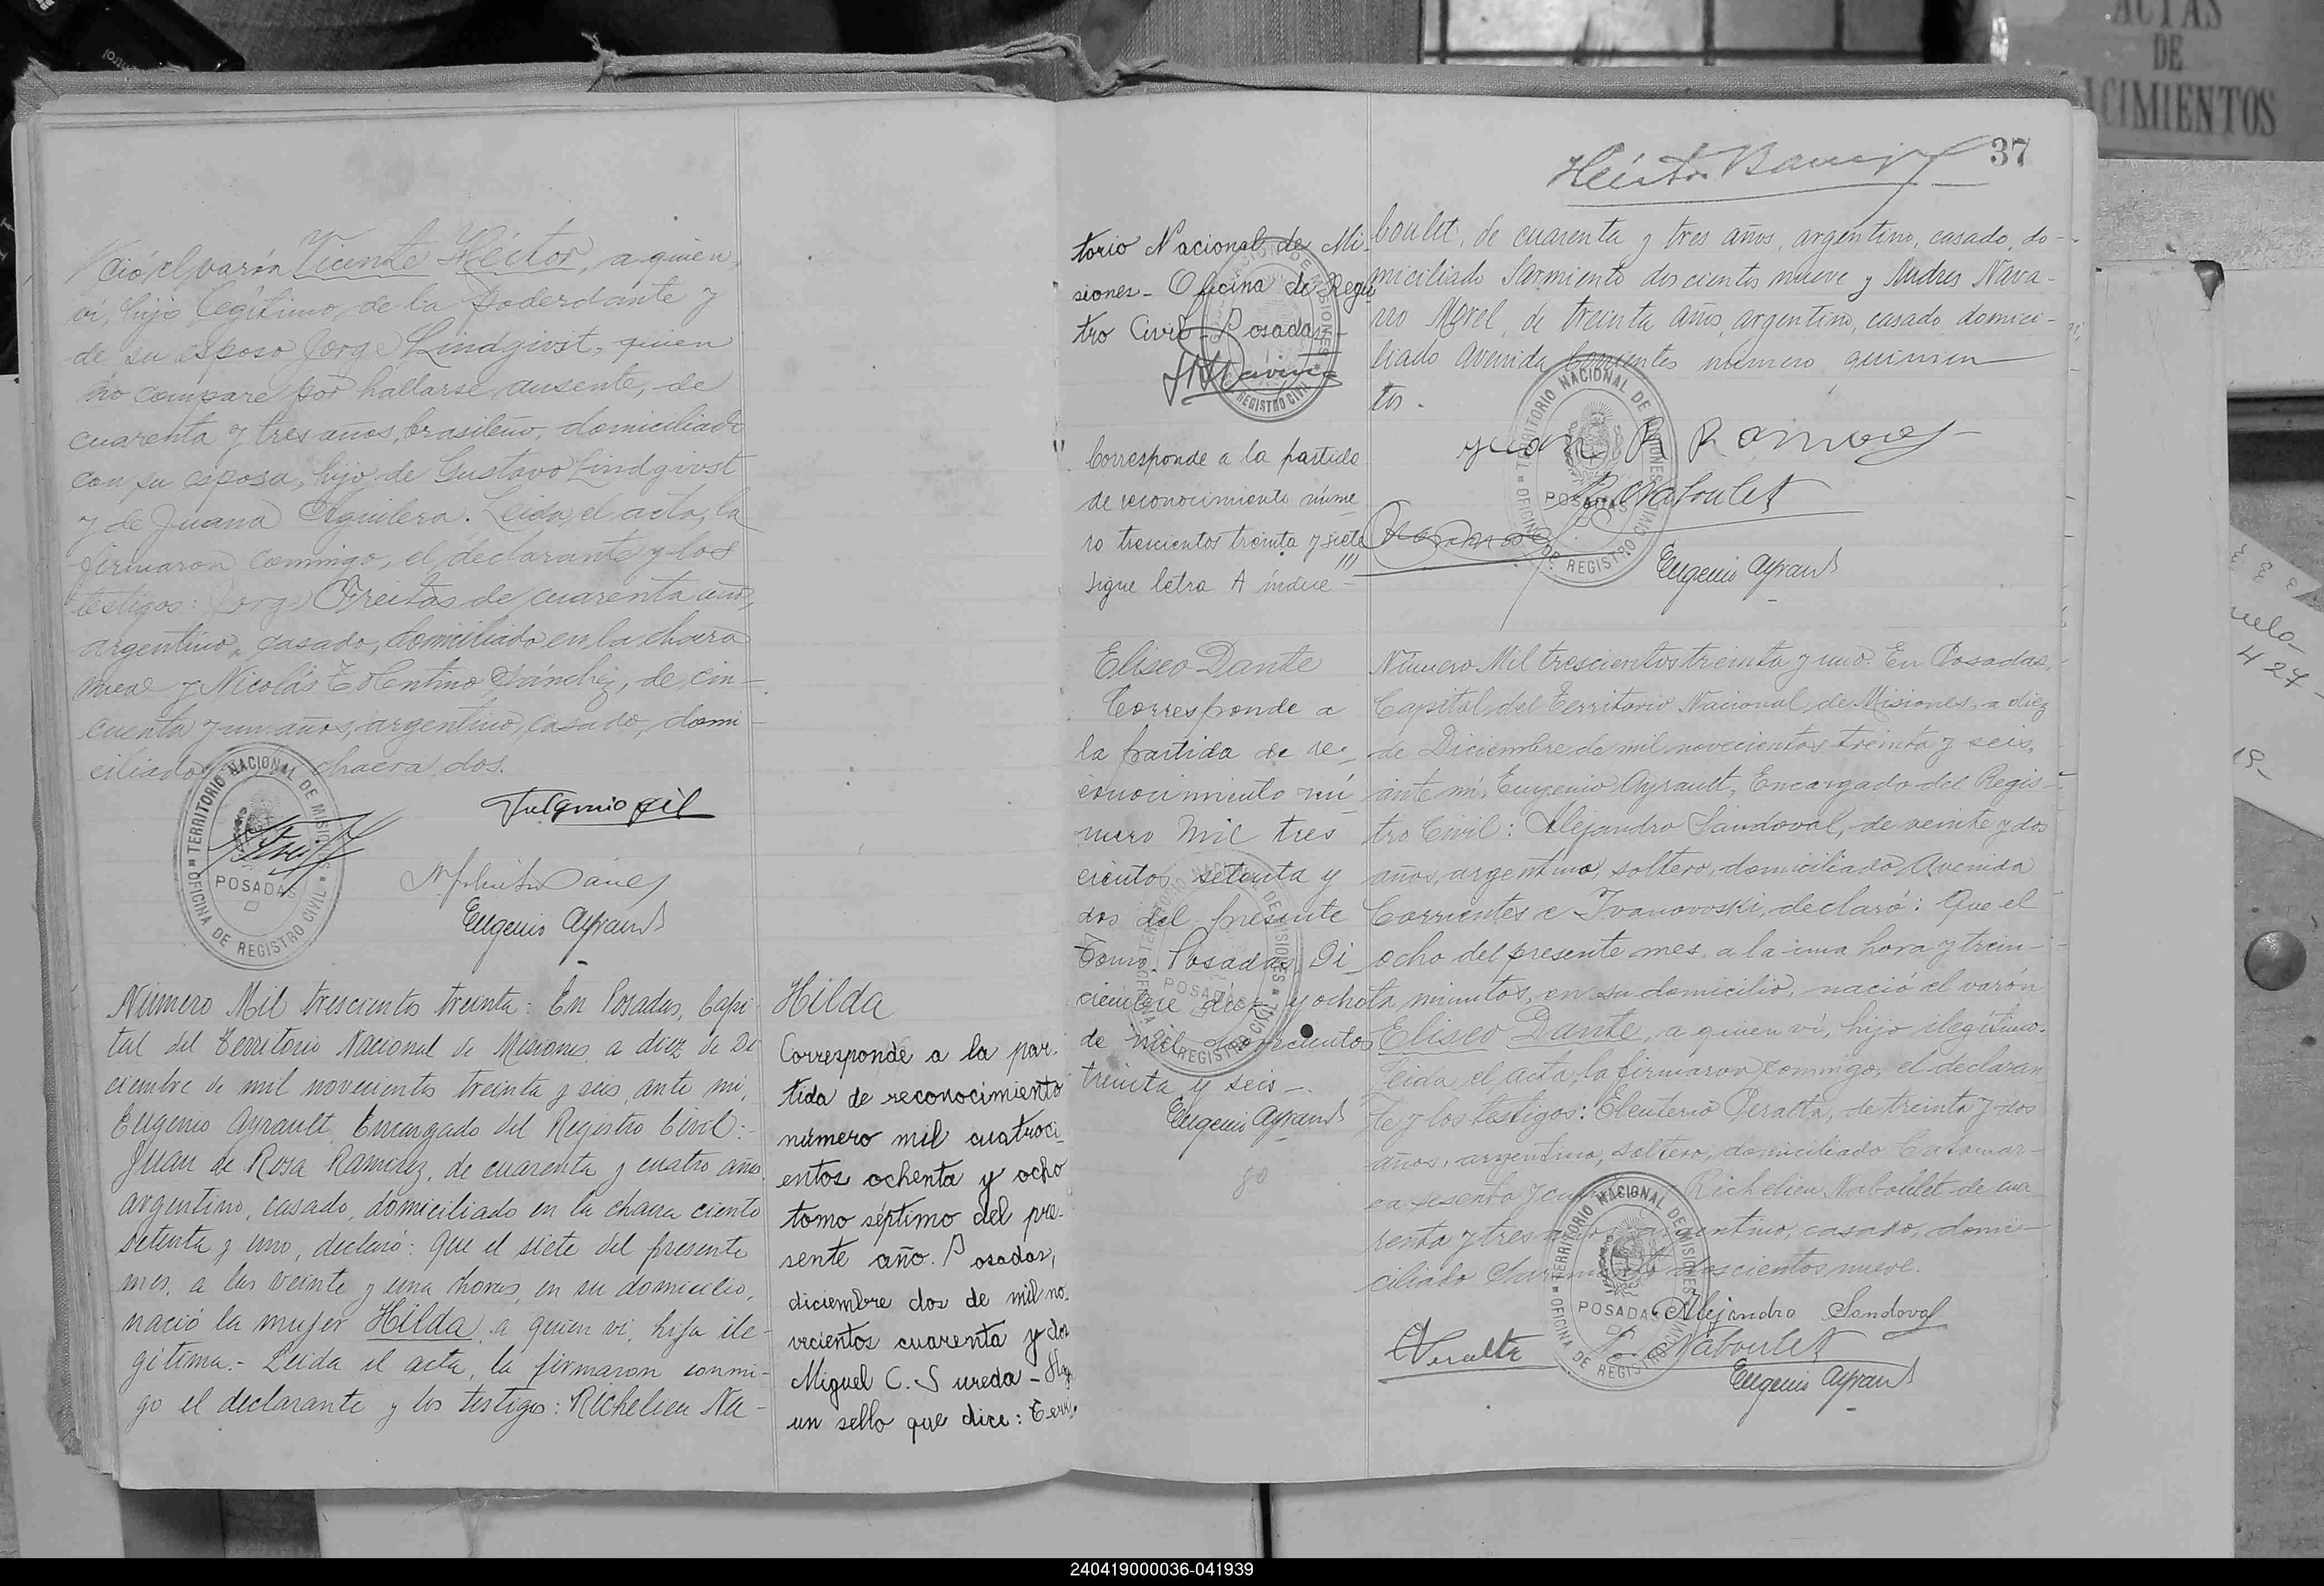 ACTAS
DE
CIMIENTOS
ció el varón Vicente Héctor, a quien
ví, hijo legítimo de la poderdante y
de su esposo Jorge Lindgivst, quien
no compare por hallarse ausente, de
cuarenta y tres años, brasileño, domiciliado
con su esposa, hijo de Gustavo Lindgivst
y de Juana Aguilera. Leida el acta, la
firmaron conmigo, el declarante y los
testigos: Jorge Freitas de cuarenta años,
argentino, casado, domiciliado en la chacra
nueve y Nicolás Tolentino Sánchez, de cin-
cuenta y un años, argentino, casado, domi
ciliado chacra dos.
TERRITORIO NACIONAL DE MISIONES
POSADAS
OFICINA DE REGISTRO CIVIL
Eugenio Ayrault
Número Mil trescientos treinta: En Posadas, Capi
tal del Territorio Nacional de Misiones, a diez de Di
ciembre de mil novecientos treinta y seis, ante mí,
Eugenio Ayrault, Encargado del Registro Civil:-
Juan de Rosa Ramirez, de cuarenta y cuatro años
argentino, casado, domiciliado en la chacra ciento
setenta y uno, declaró: Que el siete del presente
mes, a las veinte y una horas, en su domicilio,
nació la mujer Hilda, a quien vi, hija ile-
gítima.- Leida el acta, la firmaron conmi-
go el declarante y los testigos: Richelieu Na-
Hilda
Corresponde a la par-
tida de reconocimiento
número mil cuatroci_
entos ochenta y ocho
tomo séptimo del pre-
sente año. Posadas,
diciembre dos de mil no-
vecientos cuarenta y dos
Miguel C. Sureda - Hay
un sello que dice: Terri-
37
torio Nacional de Mi-
siones - Oficina de Regis
tro Civil - Posadas -
Corresponde a la partida
de reconocimiento núme
ro trescientos treinta y siete
sigue letra A índice
boulet, de cuarenta y tres años, argentino, casado, do-
miciliado Sarmiento doscientos nueve y Andres Nava-
rro Morel, de treinta años, argentino, casado, domici-
liado Avenida Corrientes número quinien
tos.
TERRITORIO NACIONAL DE MISIONES
POSADAS
OFICINA DE REGISTRO CIVIL
Juan R Ramires
R. Naboulet
Eugenio Ayrault
Eliseo Dante
Corresponde a
la partida de re-
conocimiento nú
mero mil tres
cientos setenta y
dos del presente
tomo. Posadas, Di
ciembre diez y ocho
de mil novecientos
treinta y seis -.
Eugenio Ayrault
80
Número Mil trescientos treinta y uno. En Posadas,
Capital del Territorio Nacional de Misiones, a diez
de Diciembre de mil novecientos treinta y seis,
ante mí, Eugenio Ayrault, Encargado del Regis-
tro Civil: Alejandro Sandoval, de veinte y dos
años, argentino, soltero, domiciliado Avenida
Corrientes e Ivanovoski, declaró: Que el
ocho del presente mes, a la una hora y trein-
ta minutos, en su domicilio, nació el varón
Eliseo Dante, a quien ví, hijo ilegítimo.
Leida el acta, la firmaron conmigo, el declaran
te y los testigos: Eleuterio Peralta, de treinta y dos
años, argentino, soltero, domiciliado Catamar-
ca sesenta y Richelieu Naboulet de cua
renta y tres años argentino, casado, domi-
ciliado Sarmiento doscientos nueve.
TERRITORIO NACIONAL DE MISIONES
POSADAS
OFICINA DE REGISTRO CIVIL
Alejandro Sandoval
EPeralta
R. Naboulet
Eugenio Ayrault
240419000036-041939